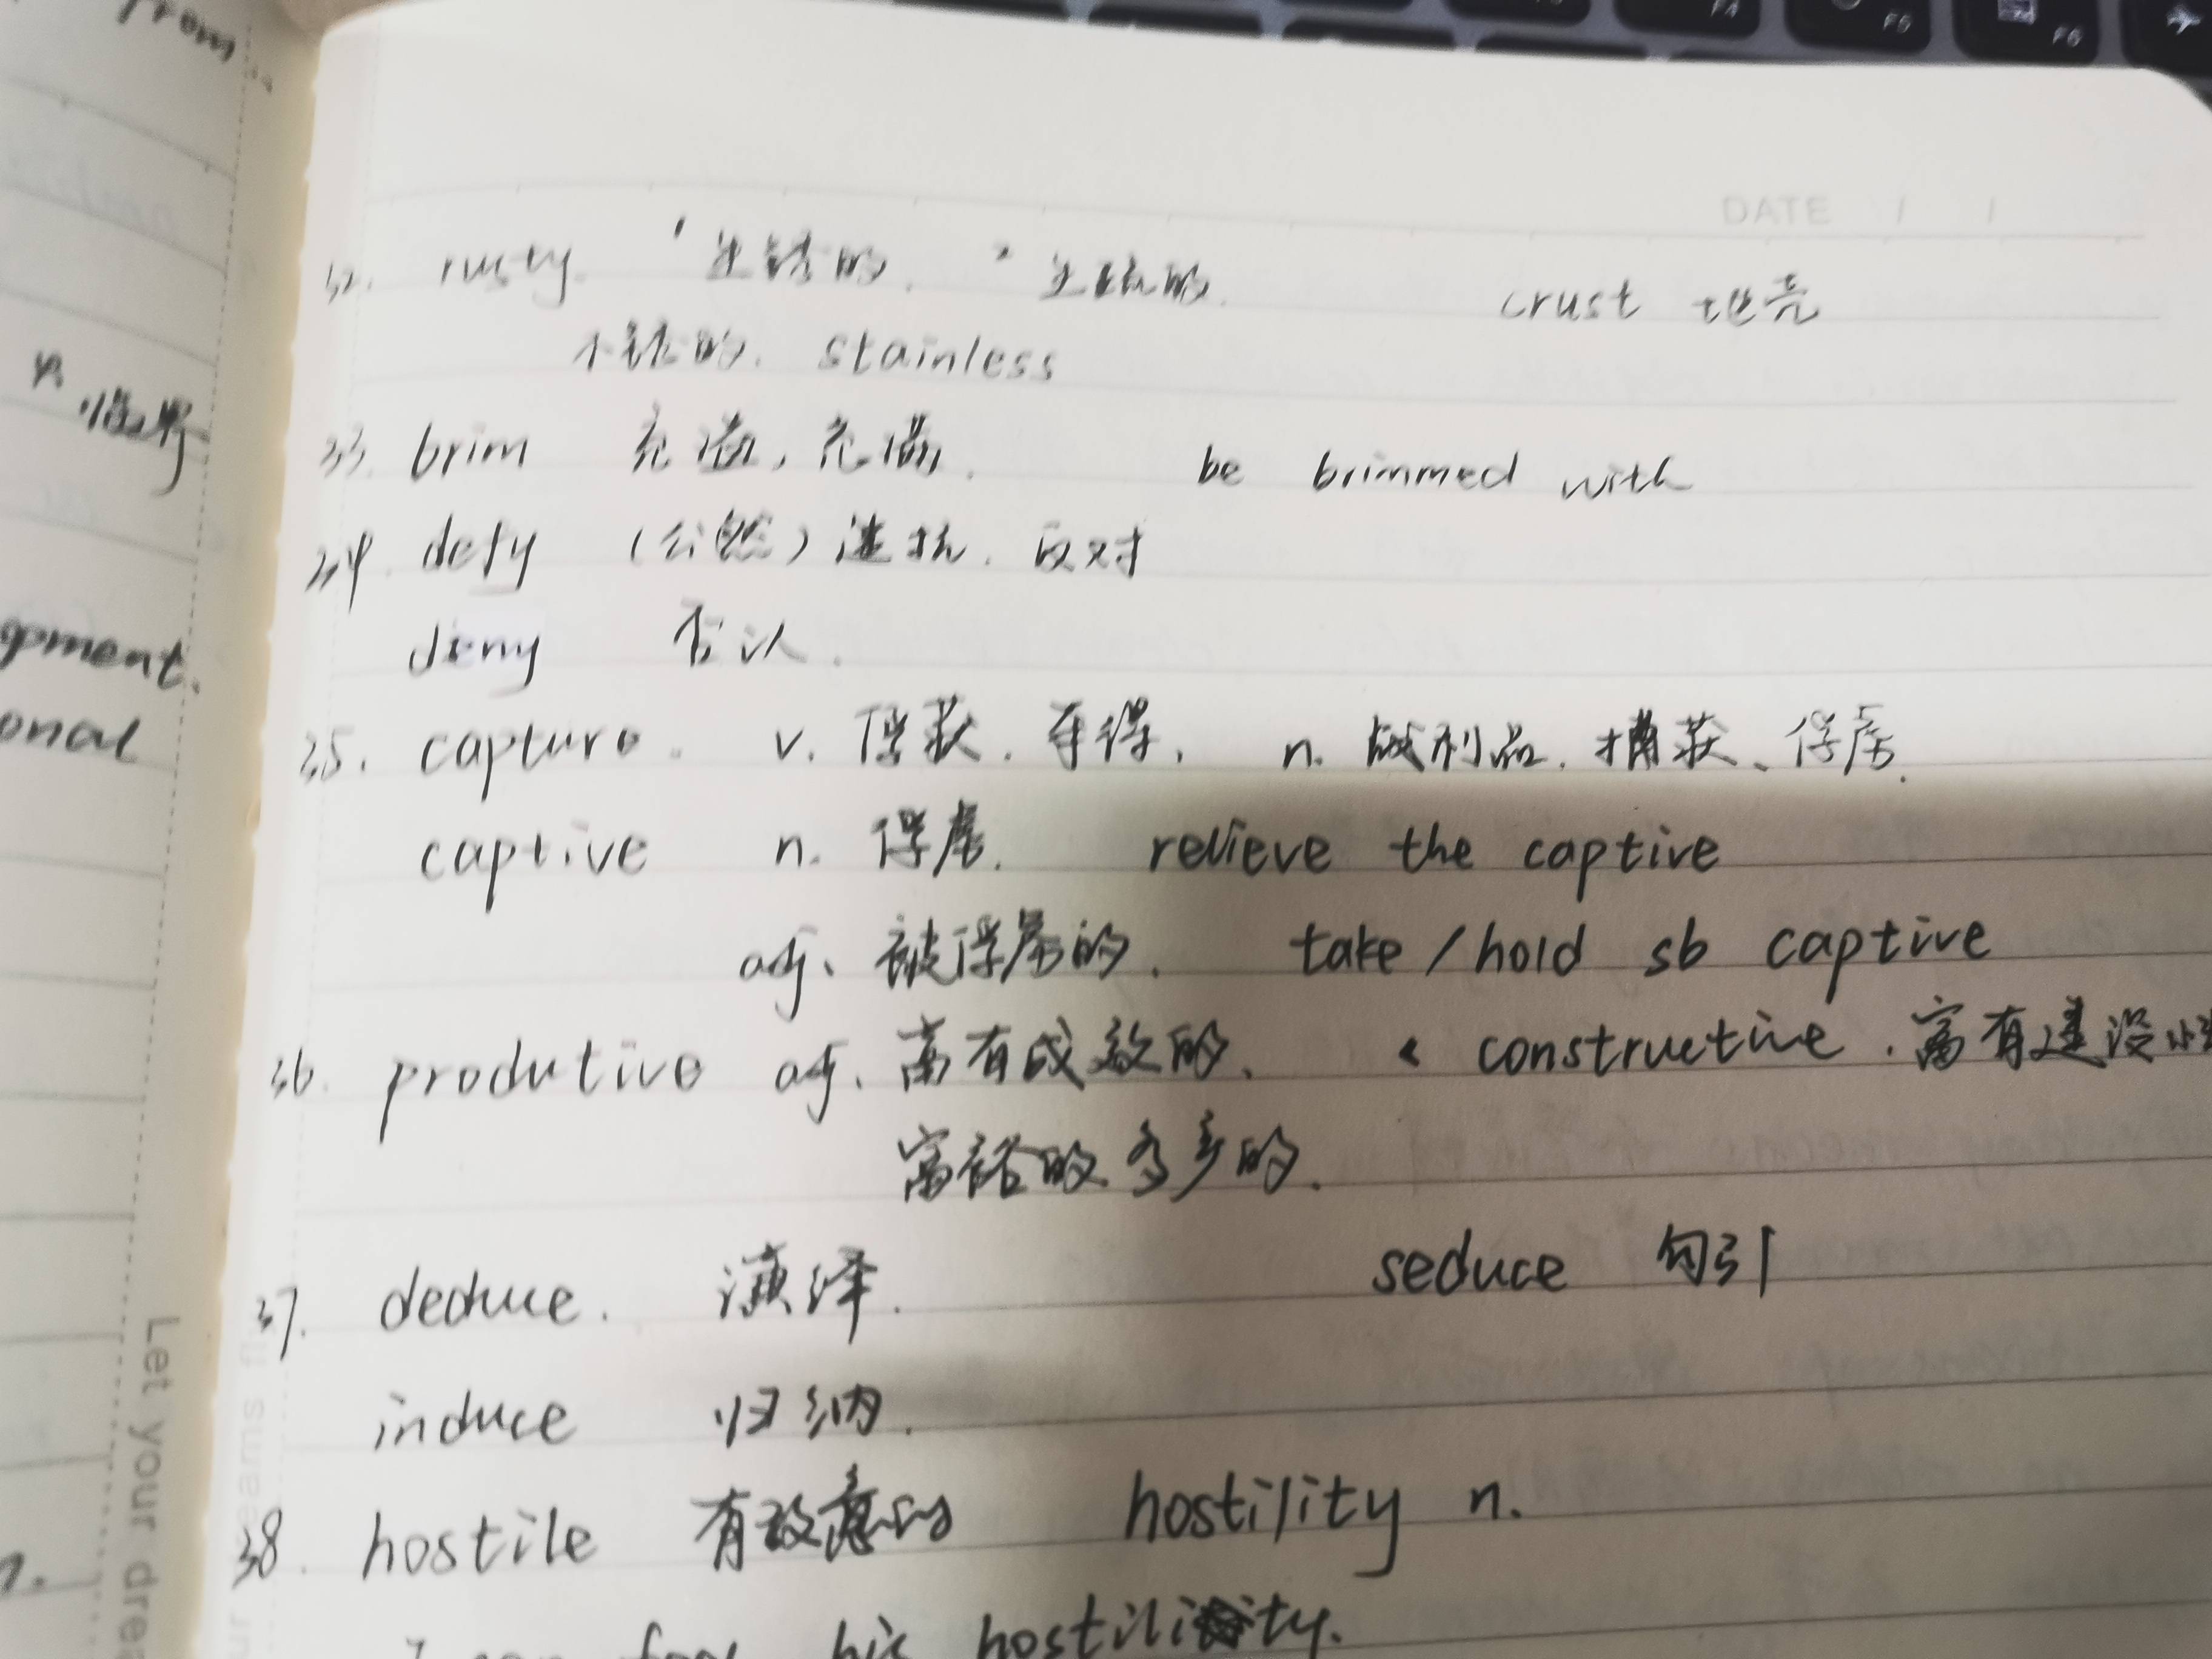 from
n 临界
gpment.
onal
n.
Let your drea
DATE / /
32. rusty ¹生锈的. ²生疏的. crust 地壳
不锈的. stainless
33. brim 充溢, 充满. be brimmed with
34. defy (公然) 违抗. 反对
deny 否认.
35. capture. v. 俘获. 夺得. n. 战利品. 捕获、俘虏.
captive n. 俘虏. relieve the captive
adj. 被俘虏的. take / hold sb captive
36. produtive adj. 富有成效的. constructive. 富有建设性
富裕的. 多产的.
37. deduce. 演绎. seduce 勾引
induce 归纳.
38. hostile 有敌意的 hostility n.
his hostility.